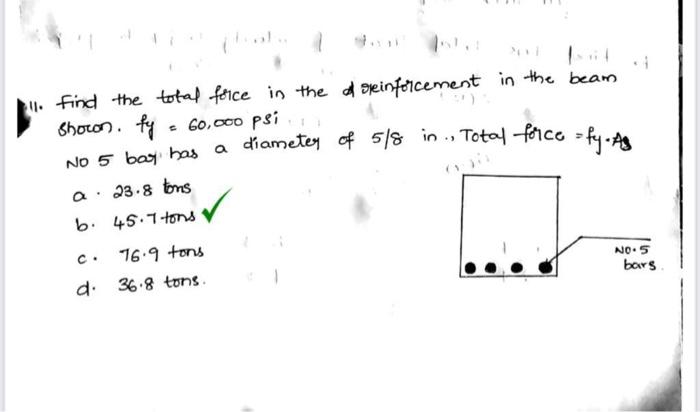 11. Find the total force in the reinforcement in the beam
shown. fy = 60,000 psi
No 5 bar has a diameter of 5/8 in., Total force = fy.As
a. 23.8 tons
b. 45.7 tons ✓
c. 76.9 tons
d. 36.8 tons.
NO.5
bars